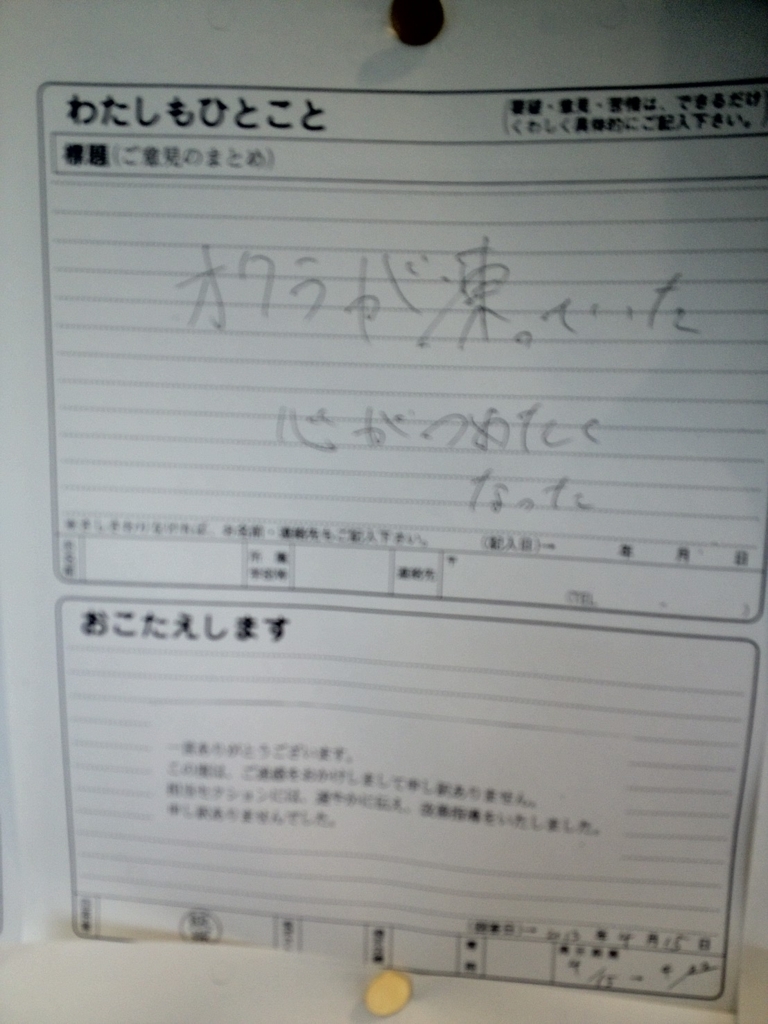 わたしもひとこと
要望・意見・苦情は、できるだけ
くわしく具体的にご記入下さい。
標題(ご意見のまとめ)
オクラが凍っていた
心がつめたく
なった
お名前・連絡先をご記入下さい。
(記入日)→ 年 月 日
連絡先 〒
(TEL - )
おこたえします
一言ありがとうございます。
この度は、ご迷惑をおかけしまして申し訳ありません。
担当セクションには、速やかに伝え、改善指導をいたしました。
申し訳ありませんでした。
2013年4月15日
4/15 → 4/22